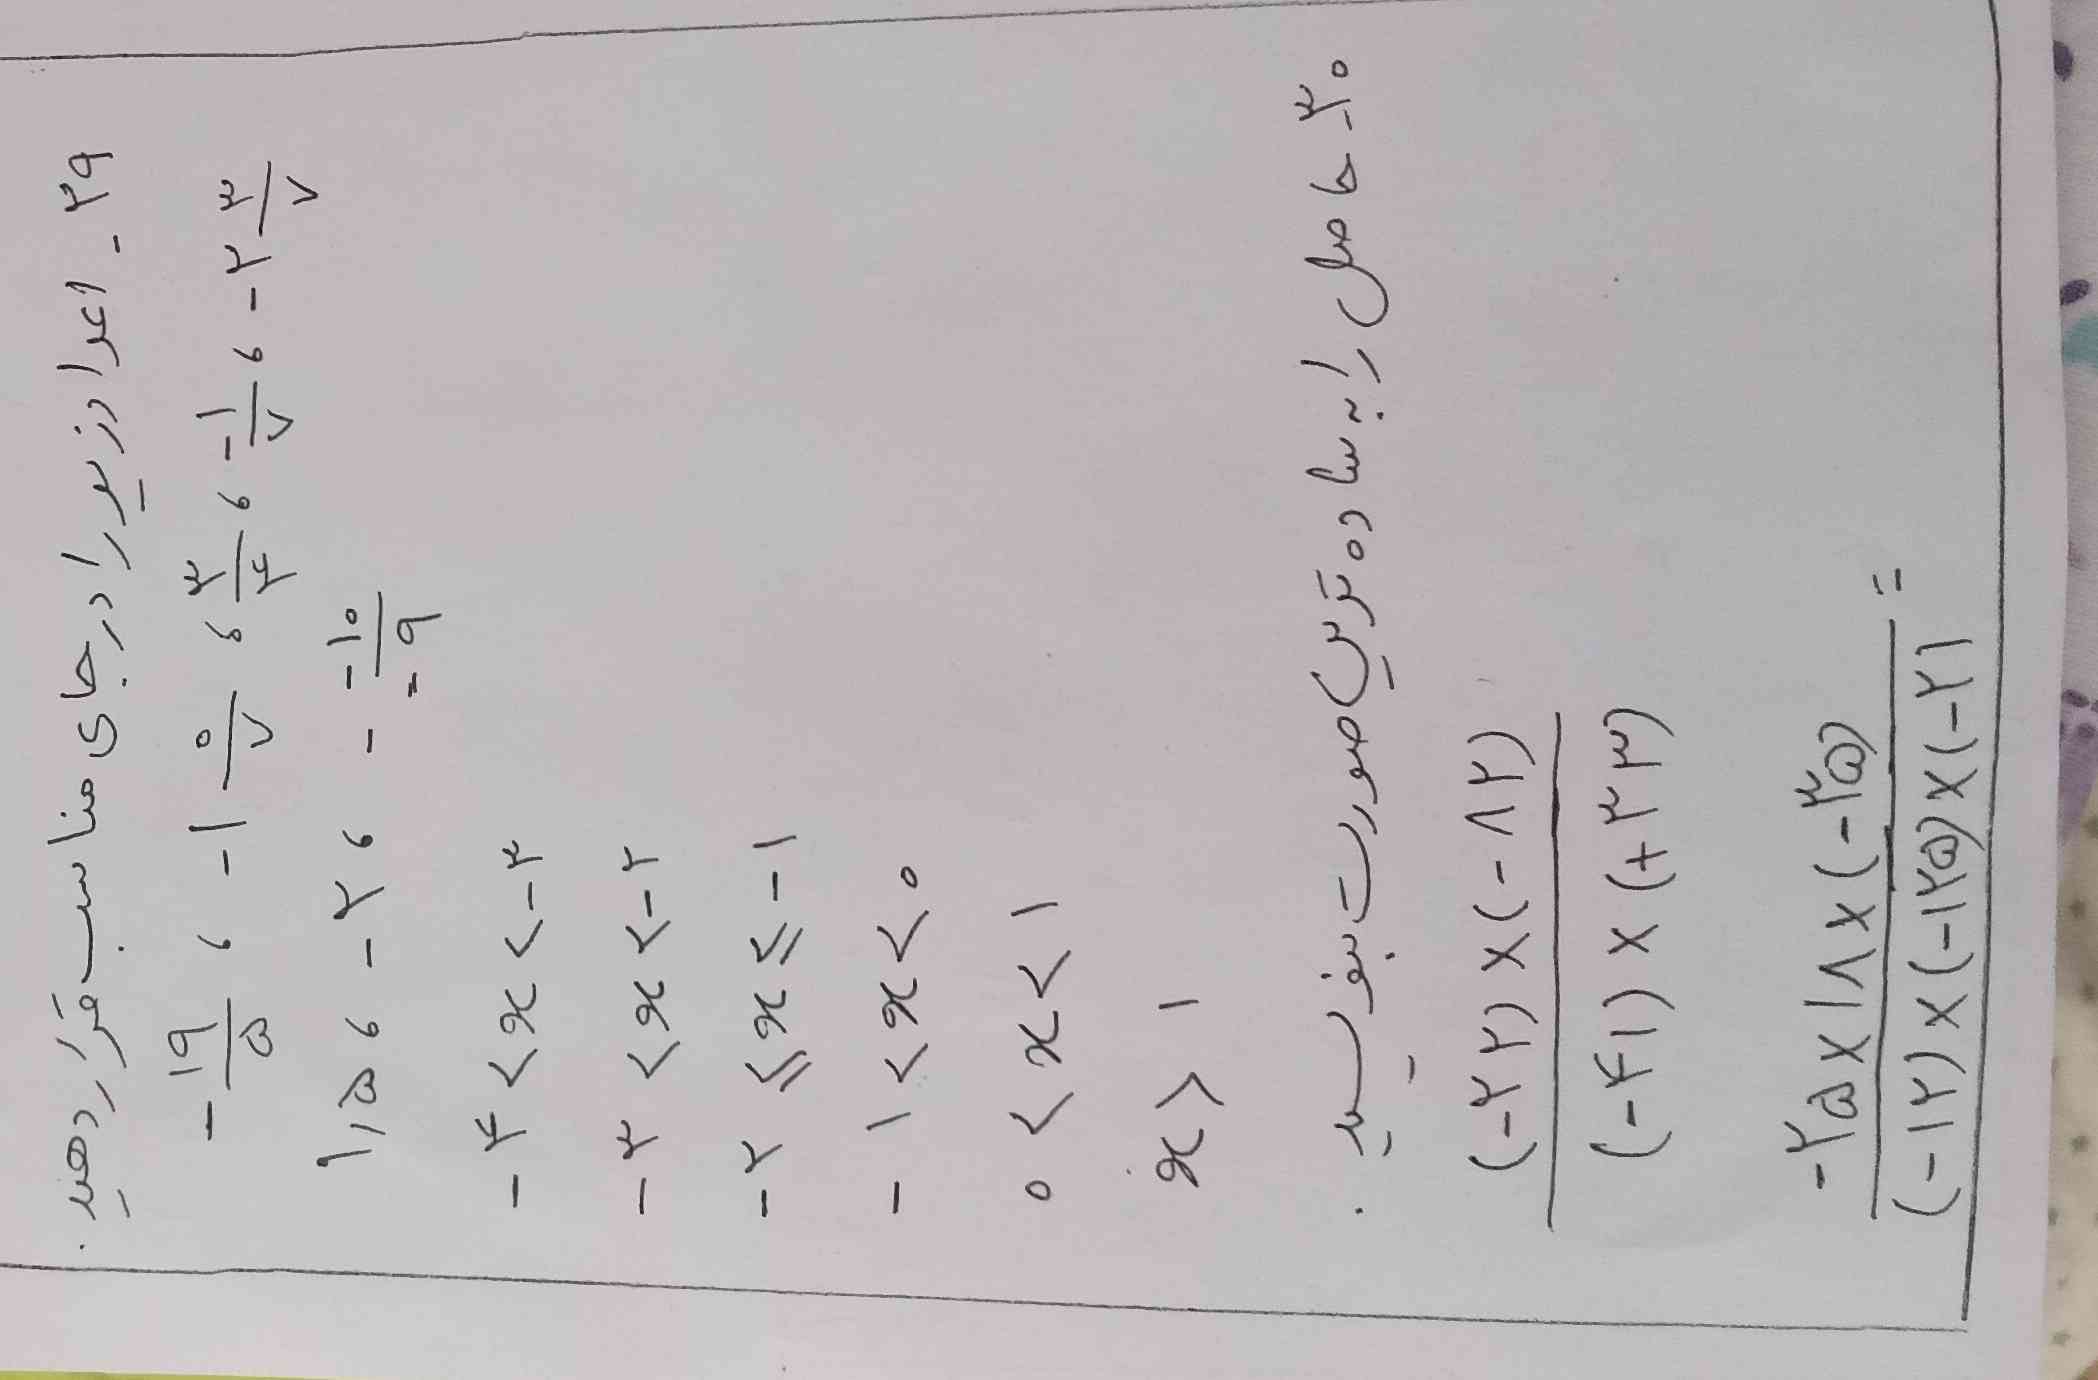 ۲۹ - اعداد زیر را در جای مناسب قرار دهید.
-۱۹/۵ ، -۱ ۵/۷ ، ۳/۴ ، -۱/۷ ، -۲ ۳/۷
۱,۵ ، -۲ ، - -۱۰/-۹
-۴ < x < -۳
-۳ < x < -۲
-۲ ≤ x ≤ -۱
-۱ < x < ۰
۰ < x < ۱
x > ۱
۳۰ - حاصل را به ساده ترین صورت بنویسید.
(-۲۲) × (-۸۲)
(-۴۱) × (+۳۳)
-۲۵ × ۱۸ × (-۳۵) =
(-۱۲) × (-۱۲۵) × (-۲۱